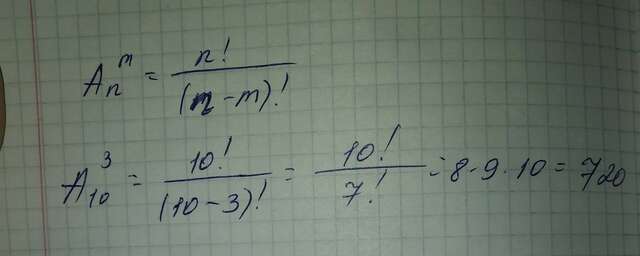 Aₙᵐ = n! / (n - m)!
A₁₀³ = 10! / (10 - 3)! = 10! / 7! = 8 · 9 · 10 = 720